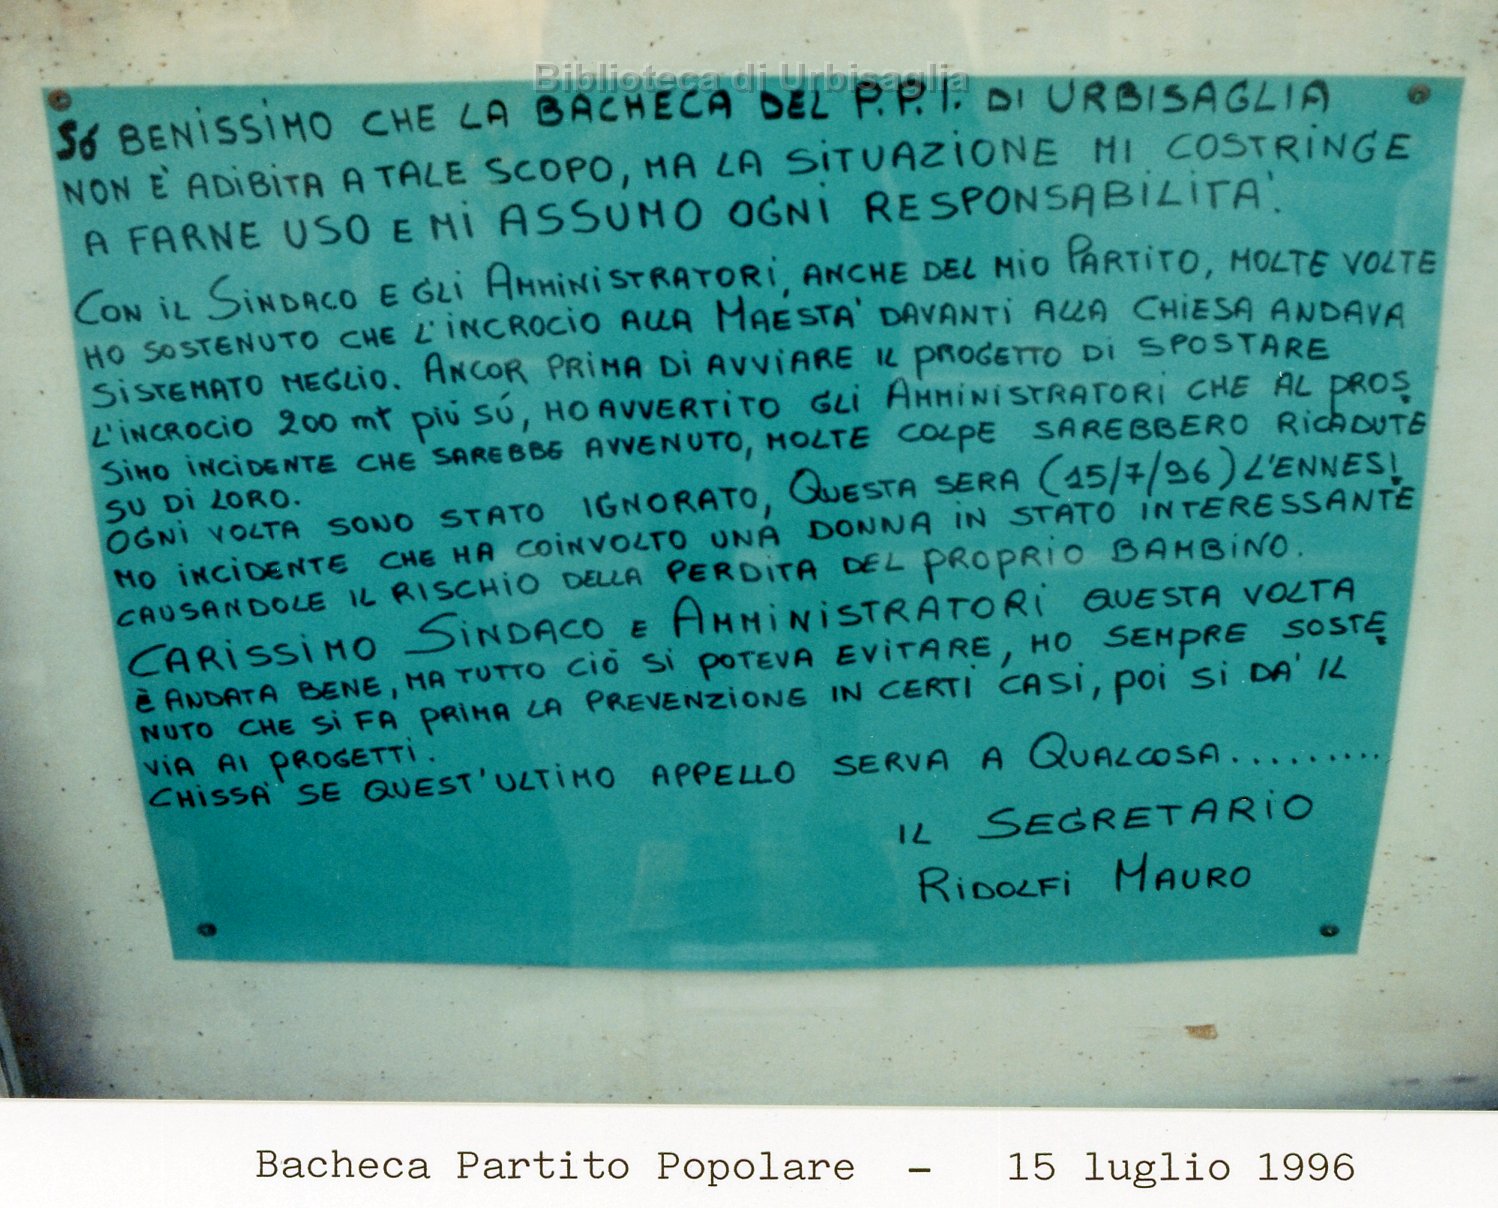 Biblioteca di Urbisaglia
SÓ BENISSIMO CHE LA BACHECA DEL P.P.I. DI URBISAGLIA
NON È ADIBITA A TALE SCOPO, MA LA SITUAZIONE MI COSTRINGE
A FARNE USO E MI ASSUMO OGNI RESPONSABILITA'.
CON IL SINDACO E GLI AMMINISTRATORI, ANCHE DEL MIO PARTITO, MOLTE VOLTE
HO SOSTENUTO CHE L'INCROCIO ALLA MAESTA' DAVANTI ALLA CHIESA ANDAVA
SISTEMATO MEGLIO. ANCOR PRIMA DI AVVIARE IL PROGETTO DI SPOSTARE
L'INCROCIO 200 mt PIÚ SÚ, HO AVVERTITO GLI AMMINISTRATORI CHE AL PROS
SIMO INCIDENTE CHE SAREBBE AVVENUTO, MOLTE COLPE SAREBBERO RICADUTE
SU DI LORO.
OGNI VOLTA SONO STATO IGNORATO, QUESTA SERA (15/7/96) L'ENNESI
MO INCIDENTE CHE HA COINVOLTO UNA DONNA IN STATO INTERESSANTE
CAUSANDOLE IL RISCHIO DELLA PERDITA DEL PROPRIO BAMBINO.
CARISSIMO SINDACO E AMMINISTRATORI QUESTA VOLTA
È ANDATA BENE, MA TUTTO CIÒ SI POTEVA EVITARE, HO SEMPRE SOSTE
NUTO CHE SI FA PRIMA LA PREVENZIONE IN CERTI CASI, POI SI DA' IL
VIA AI PROGETTI.
CHISSA' SE QUEST'ULTIMO APPELLO SERVA A QUALCOSA..........
IL SEGRETARIO
RIDOLFI MAURO
Bacheca Partito Popolare - 15 luglio 1996